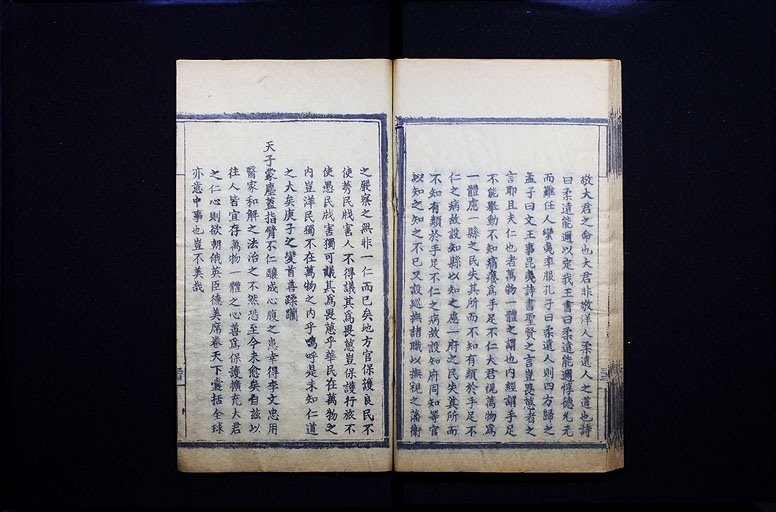 敬大君之命也大君非敬洋人柔遠人之道也詩
曰柔遠能邇以定我王書曰柔遠能邇惇德允元
而難任人蠻夷率服孔子曰柔遠人則四方歸之
孟子曰文王事昆夷詩書聖賢之言豈畏葸者之
言耶且夫仁也者萬物一體之謂也內經謂手足
不能舉動不知痛癢為手足不仁大君視萬物為
一體慮一縣之民失其所而不知有類於手足不
仁之病故設知縣以知之慮一府之民失其所而
不知有類於手足不仁之病故設知府同知等官
以知之知之不已又設巡撫諸職以撫視之藩衛
之嚴察之無非一仁而已矣地方官保護良民不
使莠民戕害人不得議其為畏葸豈保護行旅不
使愚民戕害獨可議其為畏葸乎華民在萬物之
內豈洋民獨不在萬物之內乎嗚呼是未知仁道
之大矣庚子之變首善蹂躪
天子蒙塵蓋指臂不仁釀成心腹之患幸得李文忠用
醫家和解之法治之不然恐至今未愈矣自茲以
往人皆宜存萬物一體之心善為保護擴充大君
之仁心則欲朝俄英臣德美席卷天下囊括全球
亦意中事也豈不美哉